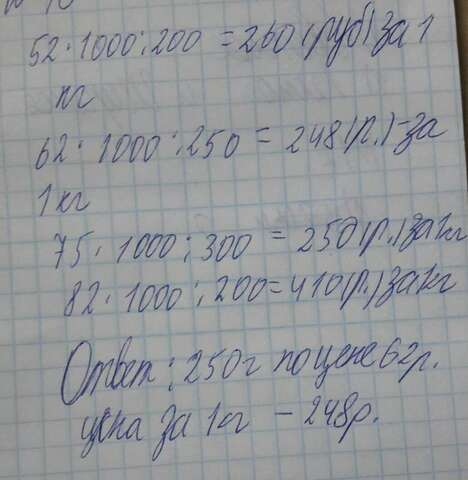 52·1000:200 = 260 (руб) за 1
кг
62·1000:250 = 248 (р.) - за
1 кг
75·1000:300 = 250 (р.) за кг
82·1000:200=410(р.) за кг
Ответ: 250г по цене 62р.
цена за 1кг - 248р.